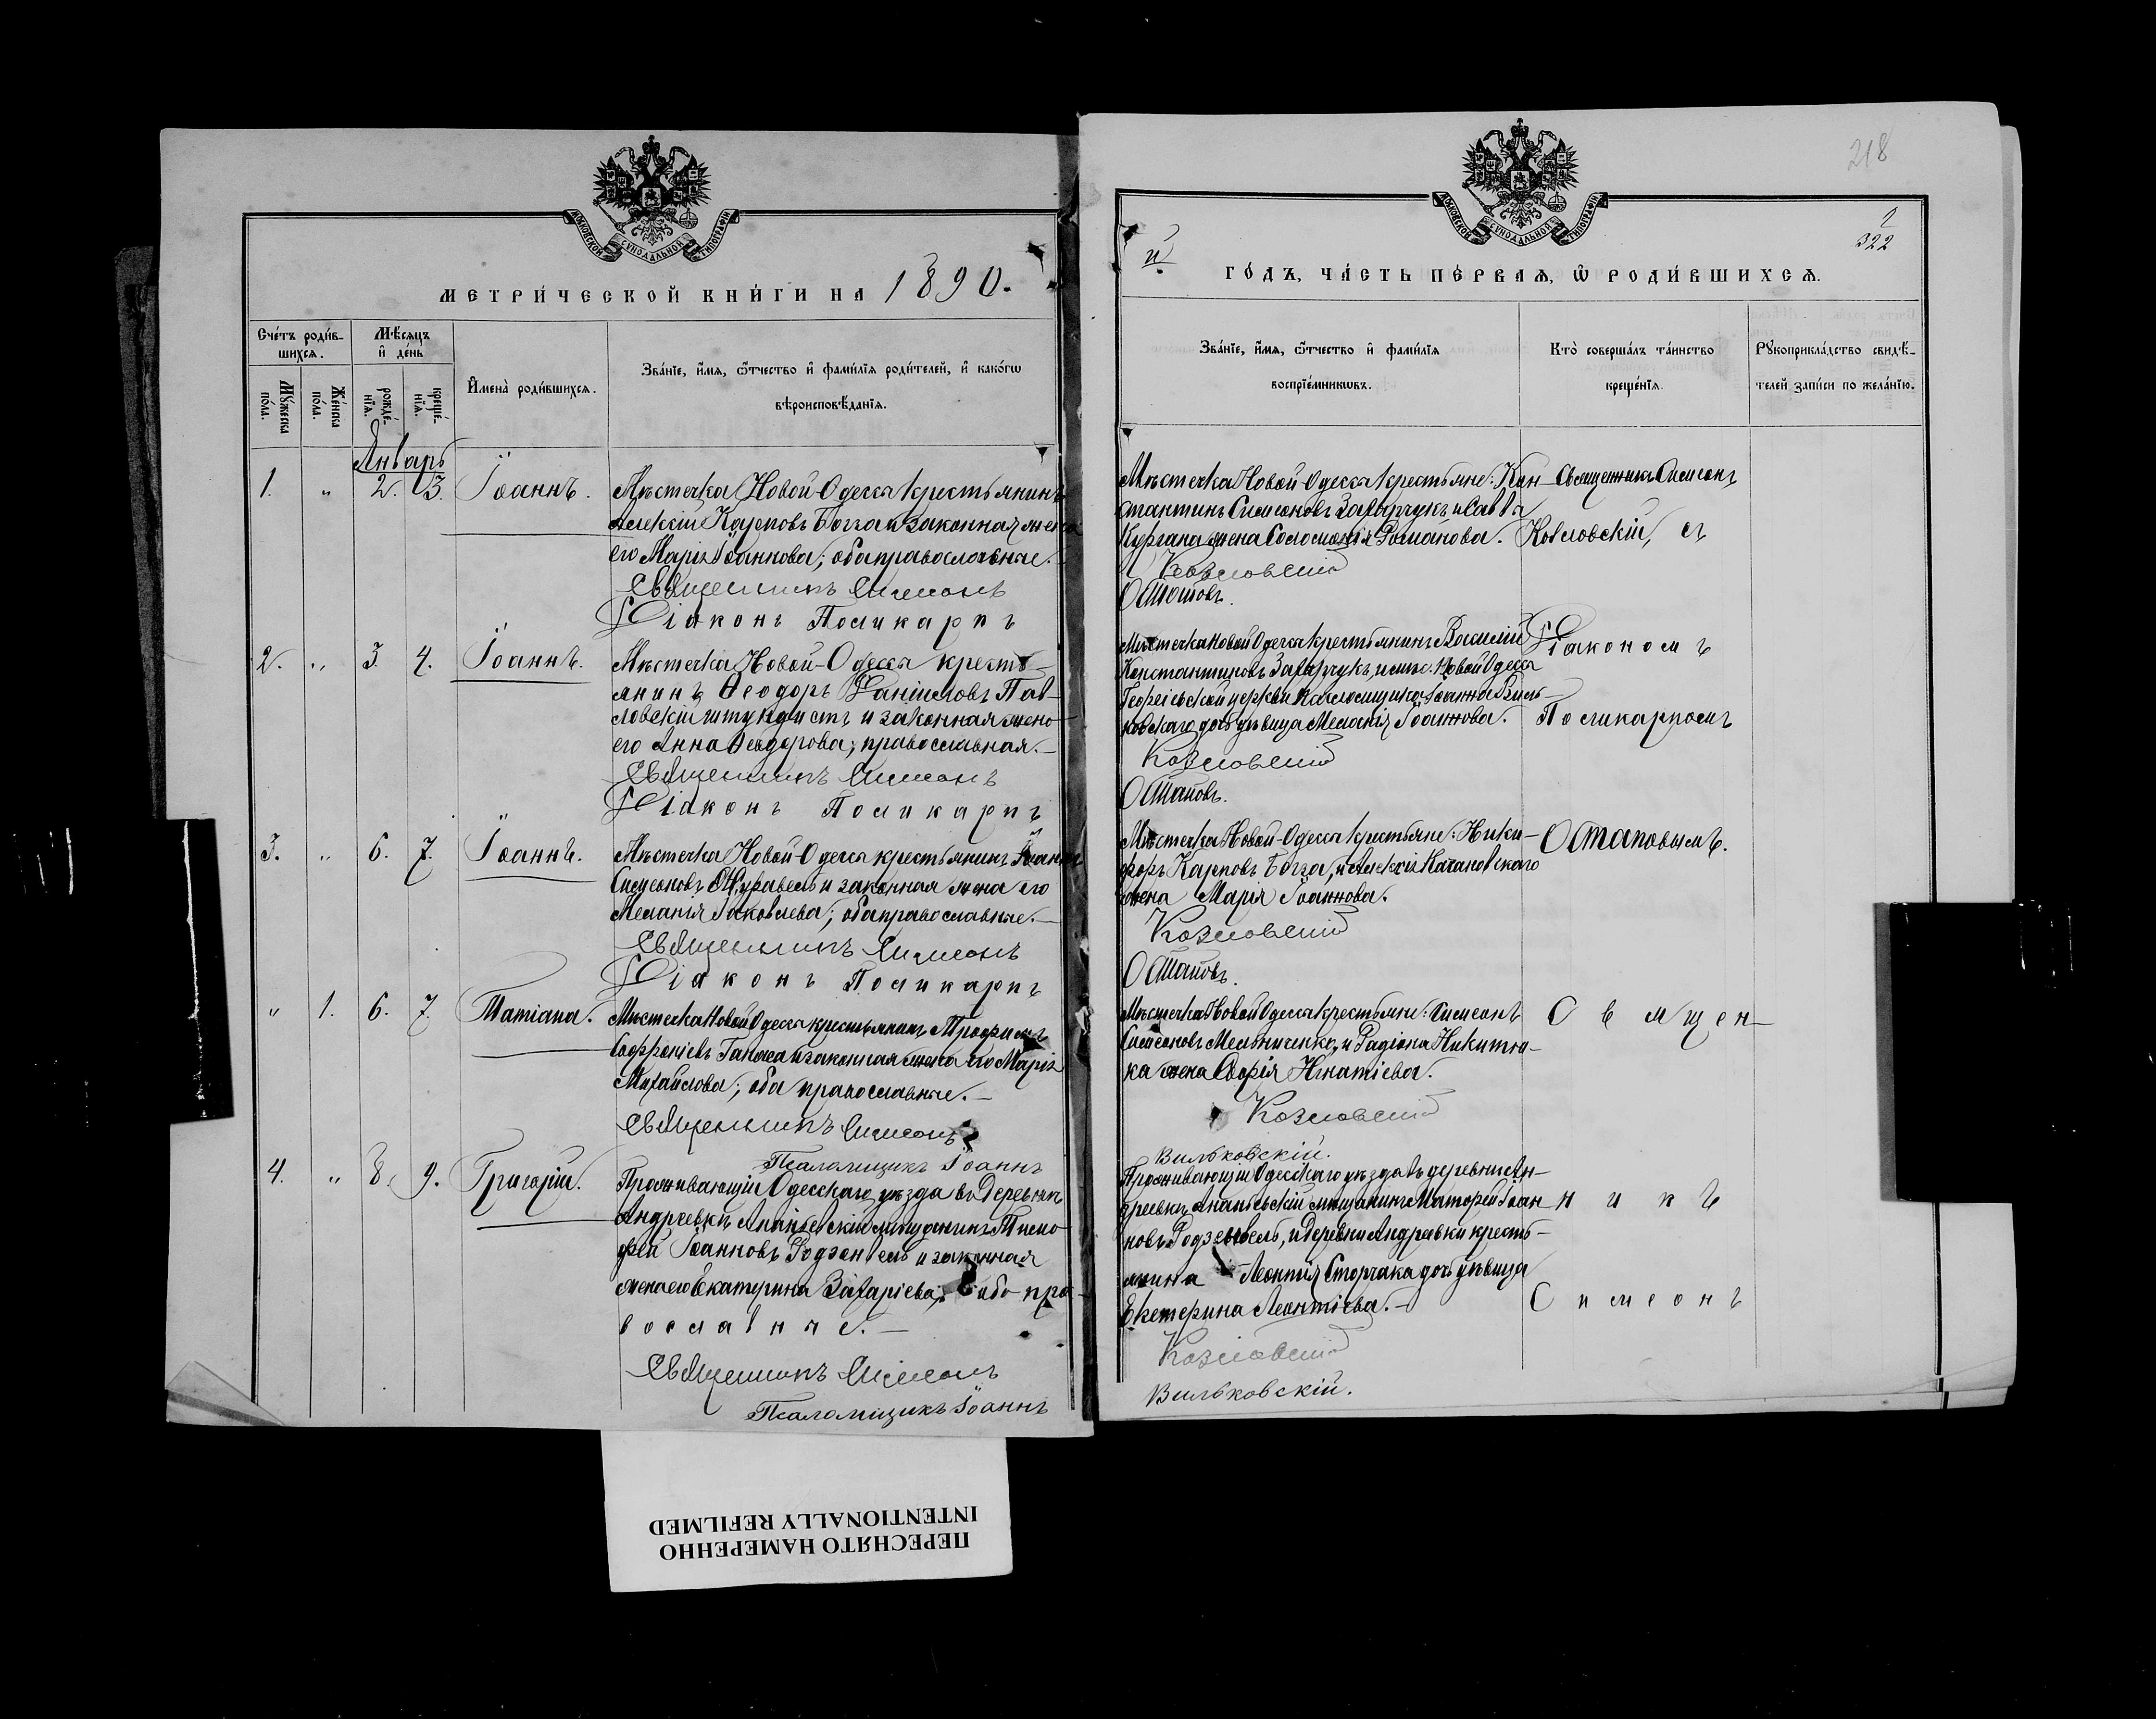 МОСКОВСКОЙ СѴНОДАЛЬНОЙ ТИПОГРАФІИ
МЕТРИ́ЧЕСКОЙ КНИ́ГИ НА 1890.
Сче́тъ роди́в-
шихсѧ.
Мѣ́сѧцъ
и҆ де́нь
Мꙋ́жеска по́ла.
Же́нска по́ла.
рожде́-
нїѧ.
креще́-
нїѧ.
И҆мена̀ роди́вшихсѧ.
Зва́нїе, и҆́мѧ, ѻ҆́тчество и҆ фами́лїѧ роди́телей, и҆ како́гѡ
вѣроисповѣ́данїѧ.
Январь
1. " 2. 3. Іоаннъ.
Мѣстечка Новой-Одесса крестьянинъ
Алексій Карповъ Богза и законная жена
его Марія Іоаннова; оба православные.
Священникъ Симеонъ
Діаконъ Поликарпъ
2. " 3. 4. Іоаннъ.
Мѣстечка Новой-Одесса кресть-
янинъ Ѳеодоръ Даніиловъ Пав-
ловскій штундистъ и законная жена
его Анна Ѳеодорова; православная.—
Священникъ Симеонъ
Діаконъ Поликарпъ
3. " 6. 7. Іоаннъ.
Мѣстечка Новой-Одесса крестьянинъ Іоаннъ
Симеоновъ Журавель и законная жена его
Меланія Іаковлева; оба православные.—
Священникъ Симеонъ
Діаконъ Поликарпъ
" 1. 6. 7. Татіана.
Мѣстечка Новой Одесса крестьянинъ Трофимъ
Софроніевъ и законная жена его Марія
Михайлова; оба православные.—
Священникъ Симеонъ
Псаломщикъ Іоаннъ
4. " 8. 9. Григорій.
Проживающій Одесскаго уѣзда въ деревнѣ
Андреевкѣ Ананьевскій мѣщанинъ Тимо-
фей Іоанновъ Родзевель и законная
жена его Екатерина Захаріева; оба пра-
вославные.—
Священникъ Симеонъ
Псаломщикъ Іоаннъ
218
МОСКОВСКОЙ СѴНОДАЛЬНОЙ ТИПОГРАФІИ
1
322
й
ГО́ДЪ, ЧА́СТЬ ПЕ́РВАѦ, Ѡ҆ РОДИ́ВШИХСѦ.
Зва́нїе, и҆́мѧ, ѻ҆́тчество и҆ фами́лїѧ
воспрїе́мникѡвъ.
Кто̀ соверша́лъ та́инство
креще́нїѧ.
Рꙋкоприкла́дство свидѣ́-
телей за́писи по жела́нїю.
Мѣстечка Новой-Одесса крестьяне: Кон-
стантинъ Симеоновъ Захарчукъ и Саввы
Кургана жена Соломонія Романова.
Козловскій
Остаповъ.
Священникъ Симеонъ
Козловскій, съ
Мѣстечка Новой Одесса крестьянинъ Василій
Константиновъ Захарчукъ, и мѣс. Новой Одесса
Георгіевской церкви псаломщика Іоанна Виль-
ковскаго дочь дѣвица Меланія Іоаннова.
Козловскій
Остаповъ.
Діакономъ
Поликарпомъ
Мѣстечка Новой-Одесса крестьяне: Ники-
форъ Карповъ Богза, и Алексія Качановскаго
жена Марія Іоаннова.
Козловскій
Остаповъ.
Остаповымъ.
Мѣстечка Новой Одесса крестьяне: Симеонъ
Симеоновъ Мельниченко, и Радіона Никитю-
ка жена Софія Игнатіева.
Козловскій
Вильковскій.
Священ-
Проживающій Одесскаго уѣзда въ деревнѣ Ан-
дреевкѣ Ананьевскій мѣщанинъ Матѳей Іоан-
новъ Родзевель, и деревни Андреевки кресть-
янина Леонтія Сторчака дочь дѣвица
Екатерина Леонтіева.—
Козловскій
Вильковскій.
никъ
Симеонъ
ПЕРЕСНЯТО НАМЕРЕННО
INTENTIONALLY REFILMED